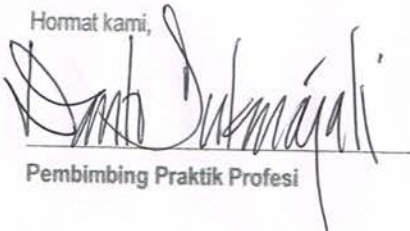 Hormat kami,
Pembimbing Praktik Profesi